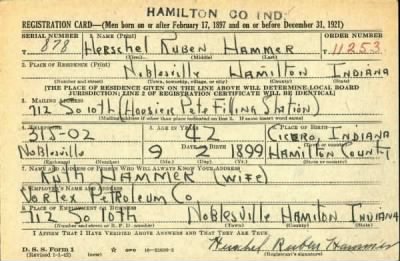 HAMILTON CO IND
REGISTRATION CARD—(Men born on or after February 17, 1897 and on or before December 31, 1921)
SERIAL NUMBER 1. NAME (Print) ORDER NUMBER
878 Herschel Ruben Hammer 11253
(First) (Middle) (Last)
2. PLACE OF RESIDENCE (Print)
Noblesville Hamilton Indiana
(Number and street) (Town, township, village, or city) (County) (State)
[THE PLACE OF RESIDENCE GIVEN ON THE LINE ABOVE WILL DETERMINE LOCAL BOARD
JURISDICTION; LINE 2 OF REGISTRATION CERTIFICATE WILL BE IDENTICAL]
3. MAILING ADDRESS
712 So 10th (Hoosier Pete Filling Station)
[Mailing address if other than place indicated on line 2. If same insert word same]
4. TELEPHONE 5. AGE IN YEARS 6. PLACE OF BIRTH
315-02 42 Cicero, Indiana
DATE OF BIRTH
Noblesville 9 2 1899 Hamilton County
(Exchange) (Number) (Mo.) (Day) (Yr.) (Town or county) (State or country)
7. NAME AND ADDRESS OF PERSON WHO WILL ALWAYS KNOW YOUR ADDRESS
Ruth Hammer (wife)
8. EMPLOYER'S NAME AND ADDRESS
Vortex Petroleum Co
9. PLACE OF EMPLOYMENT OR BUSINESS
712 So 10th Noblesville Hamilton Indiana
(Number and street or R. F. D. number) (Town) (County) (State)
I AFFIRM THAT I HAVE VERIFIED ABOVE ANSWERS AND THAT THEY ARE TRUE.
D. S. S. Form 1
(Revised 1-1-42) GPO Herschel Ruben Hammer
(Registrant's signature)